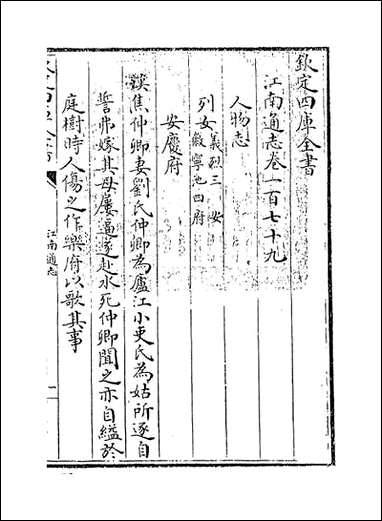 欽定四庫全書
江南通志卷一百七十九
人物志
列女義烈三 安
徽寧池四府
安慶府
漢焦仲卿妻劉氏仲卿為廬江小吏氏為姑所逐自
誓弗嫁其母屢逼遂赴水死仲卿聞之亦自縊於
庭樹時人傷之作樂府以歌其事
江南通志
一